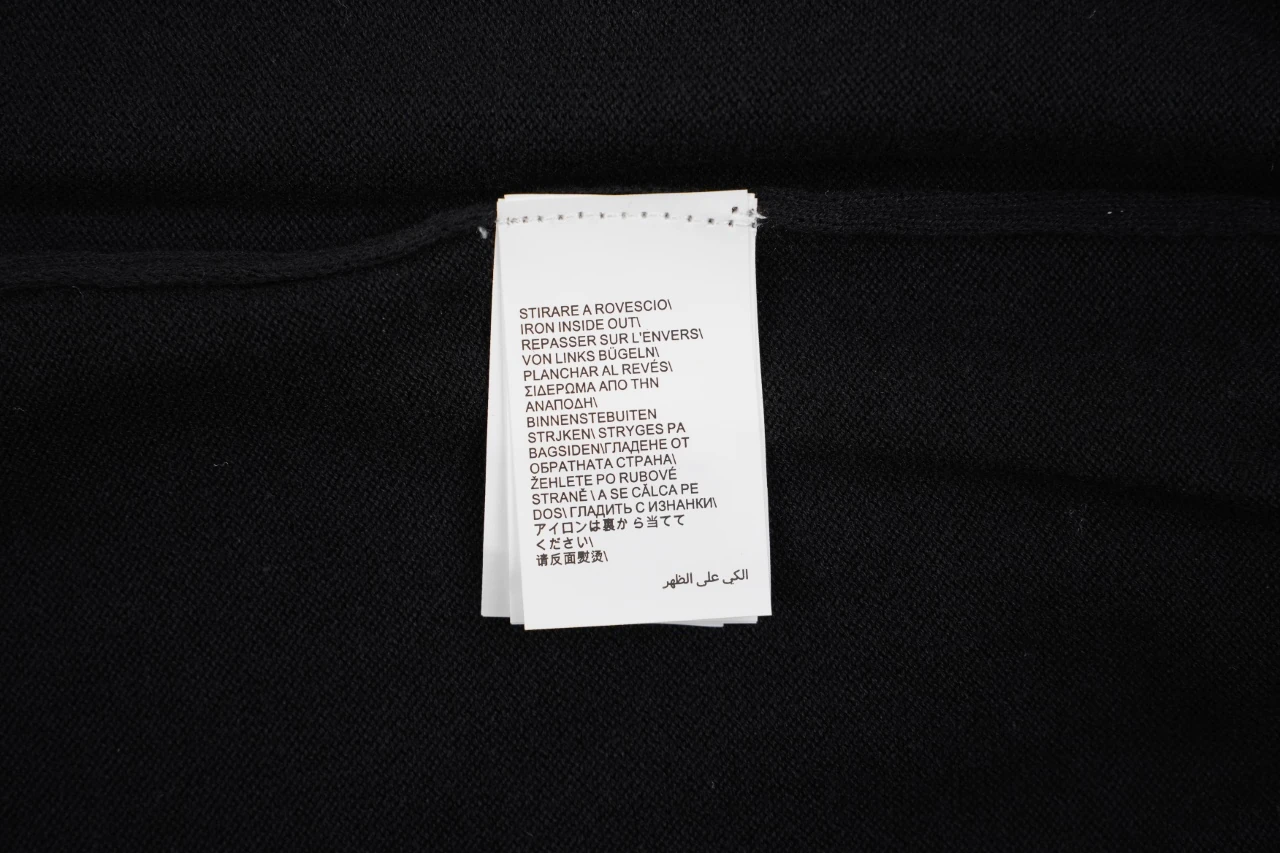 STIRARE A ROVESCIO\
IRON INSIDE OUT\
REPASSER SUR L'ENVERS\
VON LINKS BÜGELN\
PLANCHAR AL REVÉS\
ΣΙΔΕΡΩΜΑ ΑΠΟ ΤΗΝ
ΑΝΑΠΟΔΗ\
BINNENSTEBUITEN
STRJKEN\ STRYGES PA
BAGSIDEN\ГЛАДЕНЕ ОТ
ОБРАТНАТА СТРАНА\
ŽEHLETE PO RUBOVÉ
STRANĚ \ A SE CĂLCA PE
DOS\ ГЛАДИТЬ С ИЗНАНКИ\
アイロンは裏から当てて
ください\
请反面熨烫\
الكي على الظهر